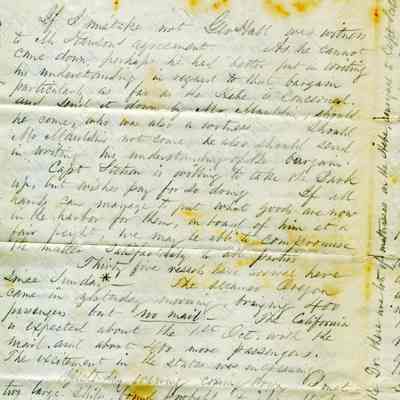 If I mistake not Geo Hall was witness
to Mr Harrisons agreement. As he cannot
come down, perhaps he had better put in writing
his understanding in regard to that bargain
particularly as far as the Hebe is concerned.
and send it down by Mr Mauldin, should
he come, who was also a witness. Should
Mr Mauldin not come he also should send
in writing his understanding of the bargain.
Capt is willing to take the Bark
up, but wishes pay for so doing. If all
hands can manage to put what goods are now
in the harbor for them, on board of him at a
fair freight, we may be able to compromise
the matter satisfactorily to all parties
Thirty five vessels have arrived here
since Sunday. The steamer Oregon
came in yesterday morning bringing 400
passengers but no mail. The California
is expected about the 1st Oct. with the
mail and about 400 more passengers.
The excitement in the states was on
Yesterday evening
two large ships